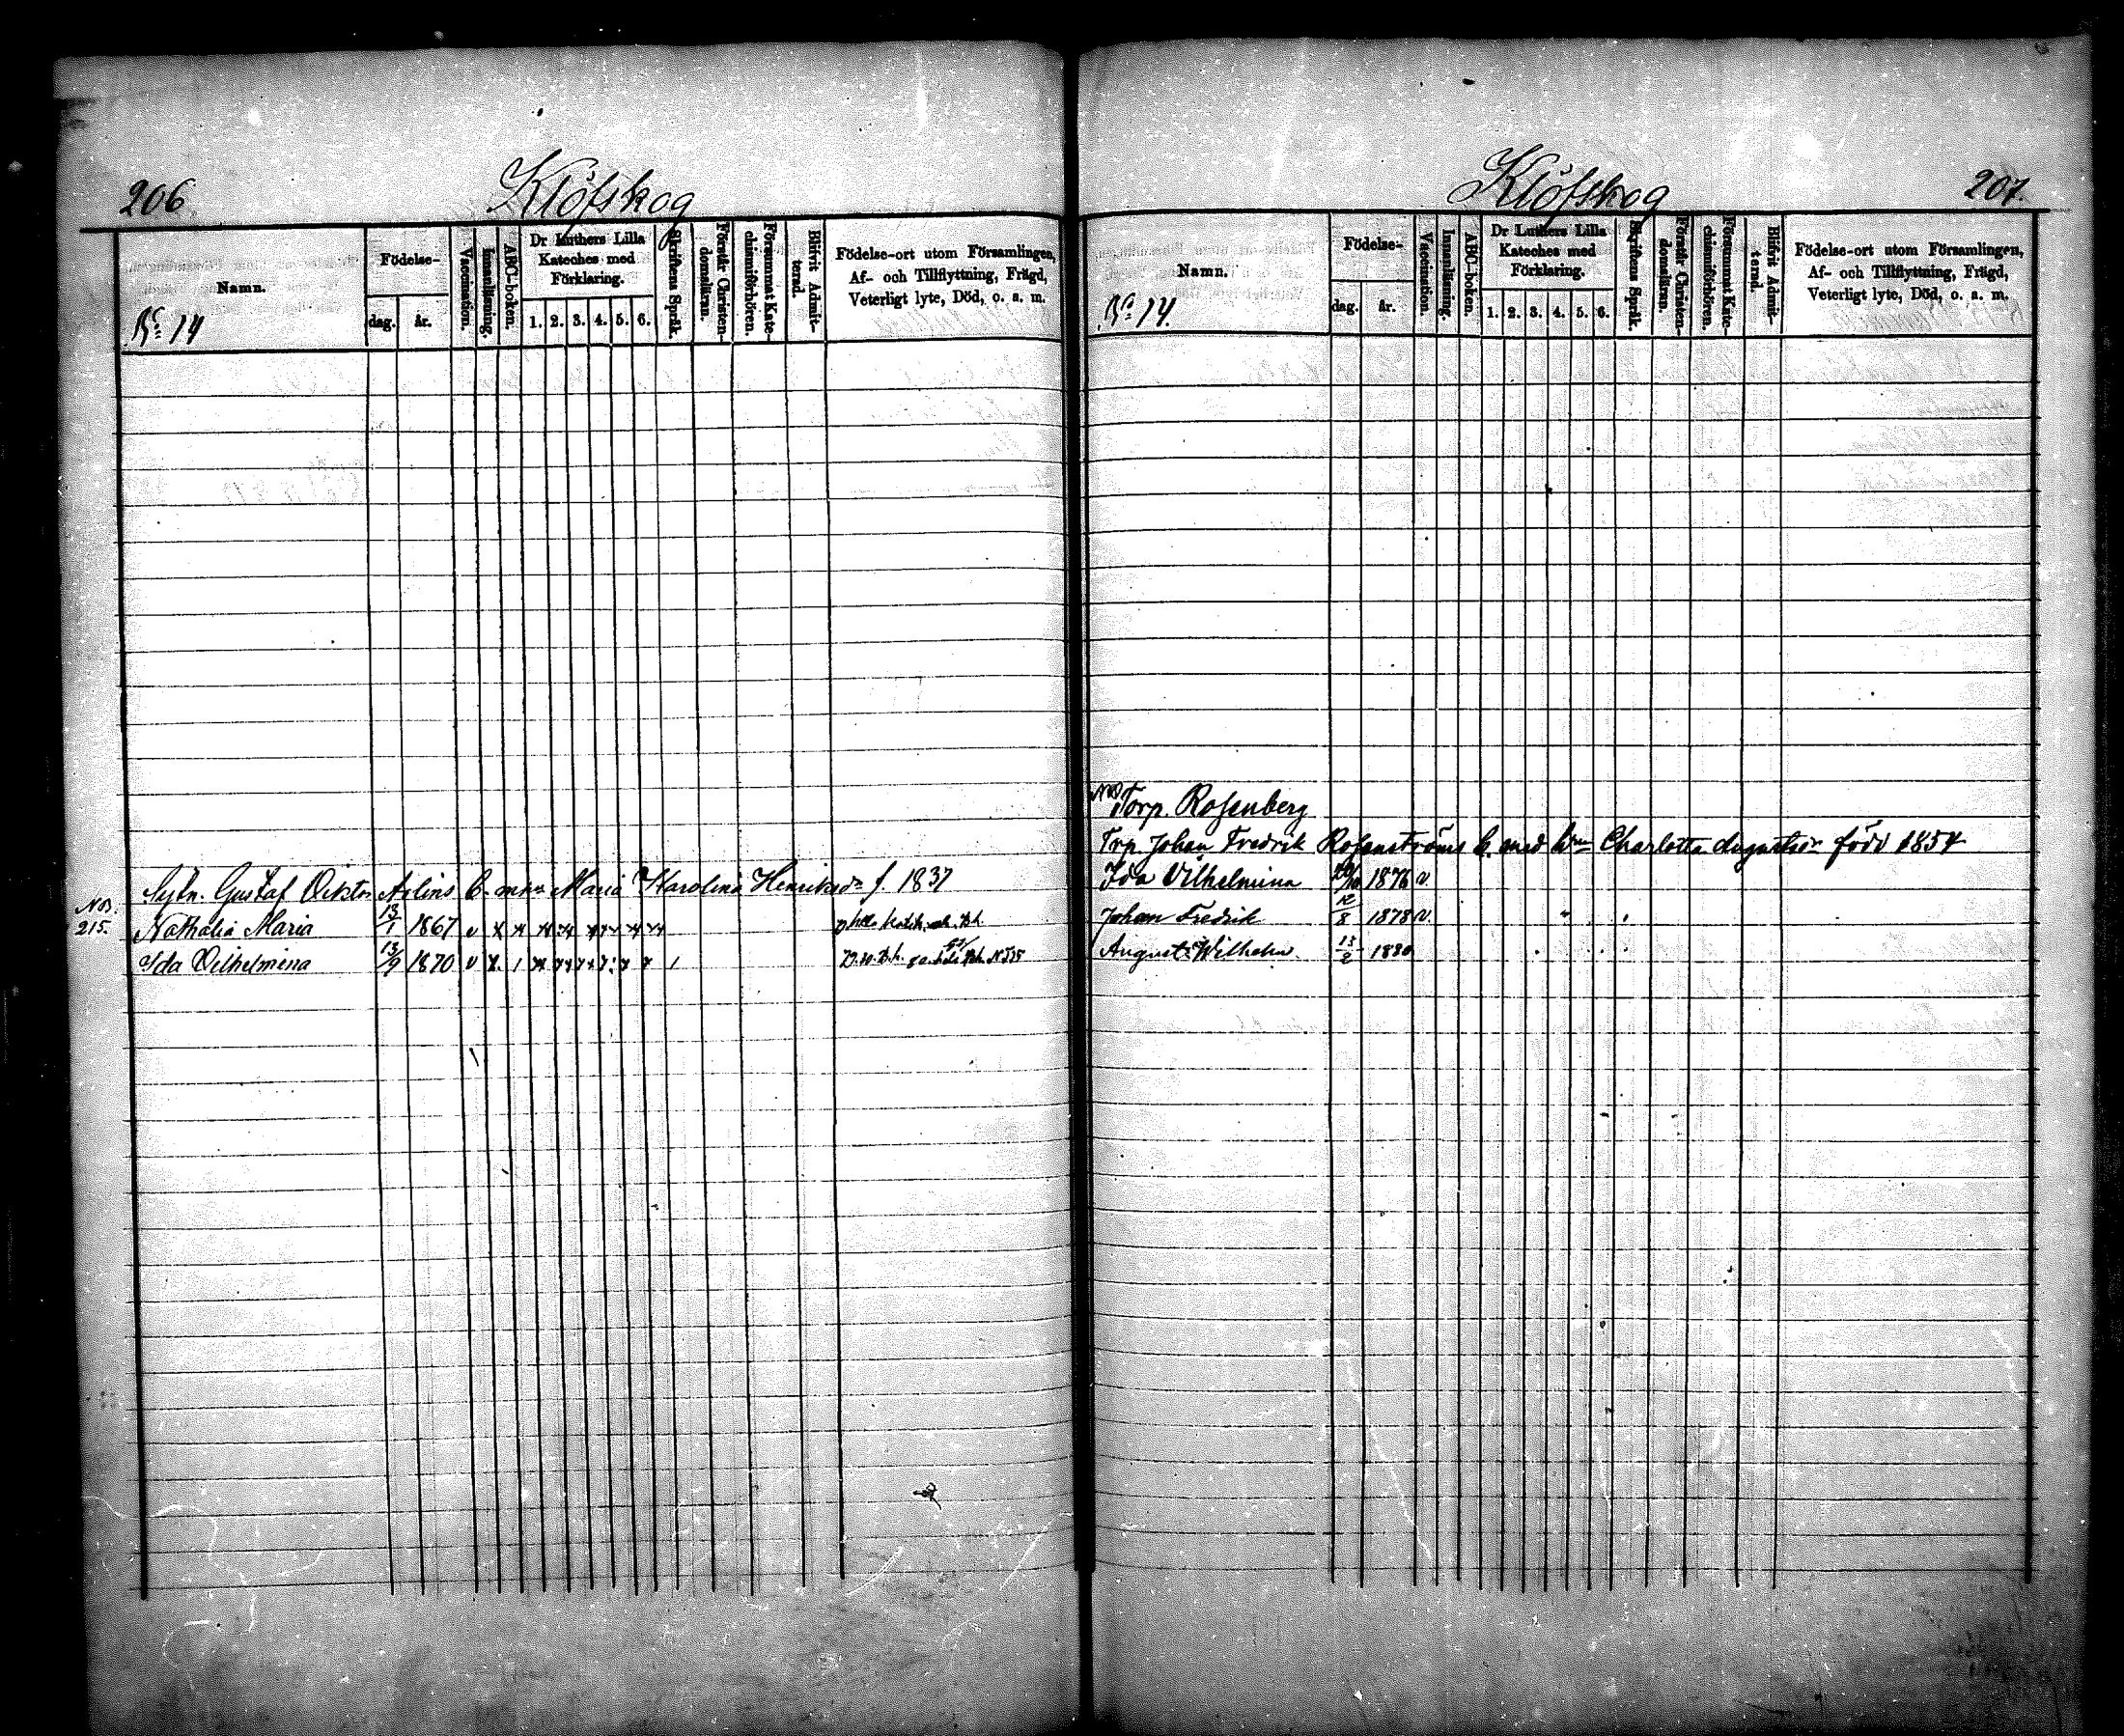 206
Klöfskog
Namn.
No 14
Födelse-
dag.
år.
Vaccination.
Innanläsning.
ABC-boken.
Dr Luthers Lilla
Kateches med
Förklaring.
1. 2. 3. 4. 5. 6.
Skriftens Språk.
Förstår Christen-
domsläran.
Försummat Kate-
chismiförhören.
Blifvit Admit-
terad.
Födelse-ort utom Församlingen,
Af- och Tillflyttning, Frägd,
Veterligt lyte, Död, o. a. m.
Gustaf Arlins B. m Maria Karolina Henriksdr f. 1837
NB.
215. Nathalia Maria 13/1 1867 v
Ida Vilhelmina 13/9 1870 v
Klöfskog
207.
Namn.
No 14.
Födelse-
dag.
år.
Vaccination.
Innanläsning.
ABC-boken.
Dr Luthers Lilla
Kateches med
Förklaring.
1. 2. 3. 4. 5. 6.
Skriftens Språk.
Förstår Christen-
domsläran.
Försummat Kate-
chismiförhören.
Blifvit Admit-
terad.
Födelse-ort utom Församlingen,
Af- och Tillflyttning, Frägd,
Veterligt lyte, Död, o. a. m.
Torp. Rosenberg
Trp. Johan Fredrik Rosenströms b. med Charlotta född 1854
Ida Vilhelmina 1876 v.
Johan Fredrik 12/8 1878 v.
August Wilhelm 13/2 1880